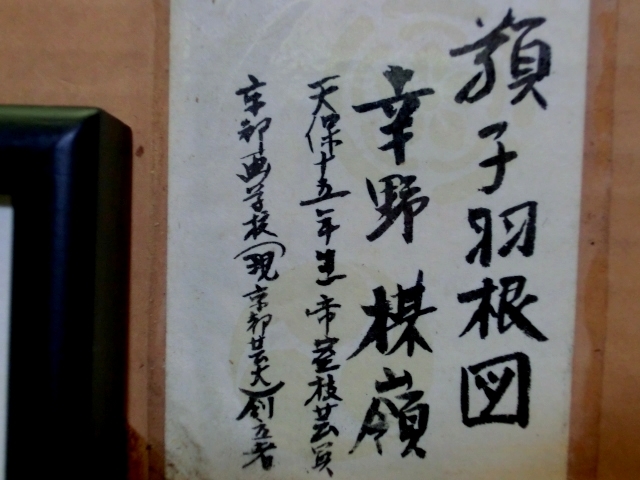 頛子羽根図
幸野楳嶺
天保十五年生帝室技芸員
京都画学校(現京都芸大)創立者